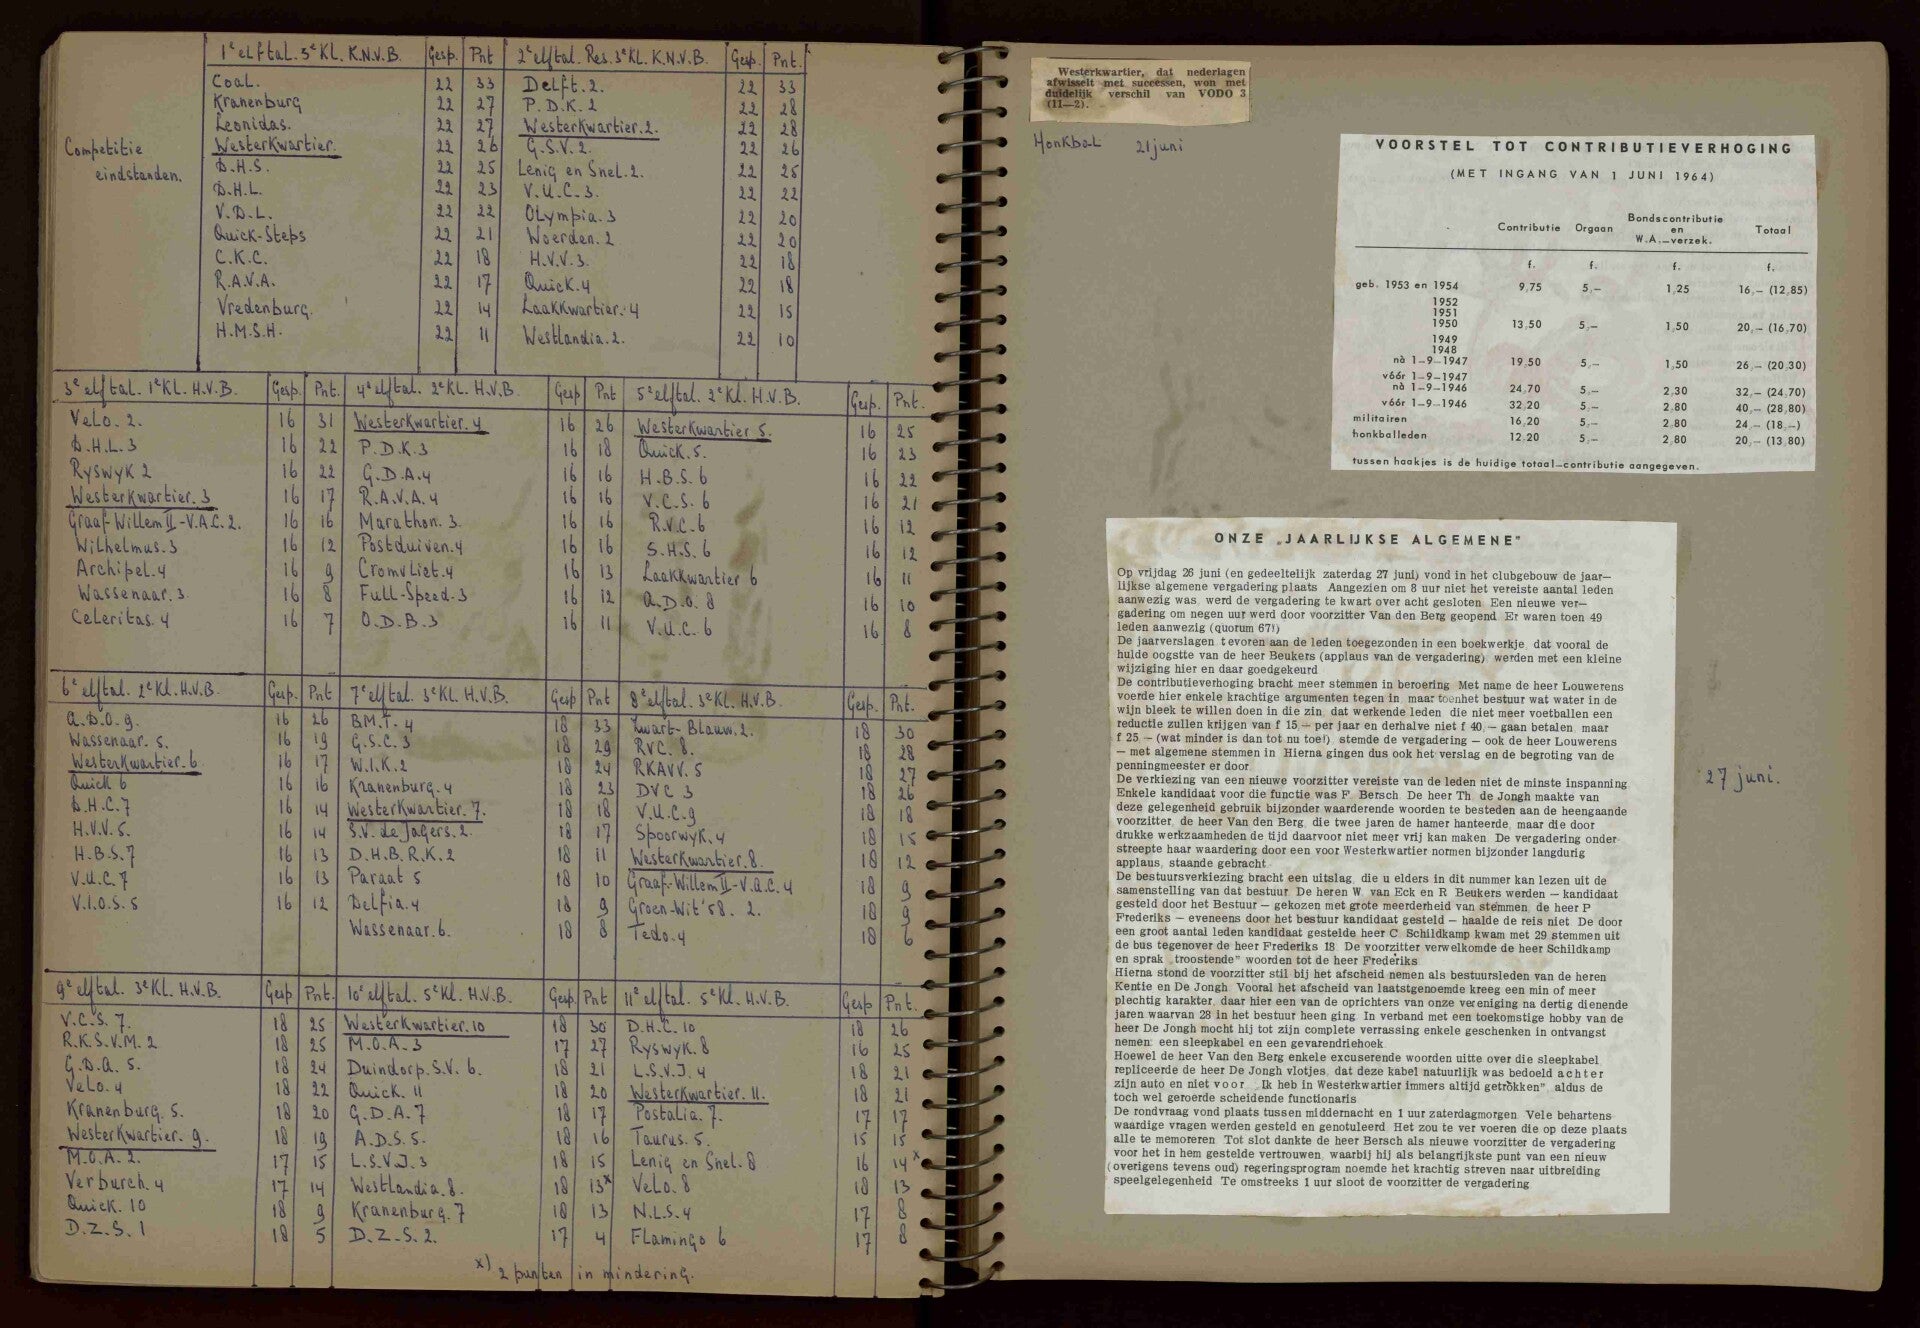 Competitie
eindstanden.
1e elftal. 3e Kl. K.N.V.B. Gesp. Pnt 2e elftal. Res. 3e Kl. K.N.V.B. Gesp. Pnt.
Coal. 22 33 Delft. 2. 22 33
Kranenburg 22 27 P.D.K. 2 22 28
Leonidas. 22 27 Westerkwartier. 2. 22 28
Westerkwartier. 22 26 G.S.V. 2. 22 26
D.H.S. 22 25 Lenig en Snel. 2. 22 25
D.H.L. 22 23 V.U.C. 3. 22 22
V.D.L. 22 22 Olympia. 3 22 20
Quick-Steps 22 21 Woerden. 2 22 20
C.K.C. 22 18 H.V.V. 3. 22 18
R.A.V.A. 22 17 Quick. 4 22 18
Vredenburg. 22 14 Laakkwartier. 4 22 15
H.M.S.H. 22 11 Westlandia. 2. 22 10
3e elftal. 1e Kl. H.V.B. Gesp. Pnt. 4e elftal. 2e Kl. H.V.B Gesp Pnt 5e elftal. 2e Kl. H.V.B. Gesp. Pnt.
Velo. 2. 16 31 Westerkwartier. 4 16 26 Westerkwartier 5. 16 25
D.H.L. 3 16 22 P.D.K. 3 16 18 Quick. 5. 16 23
Ryswyk 2 16 22 G.D.A. 4 16 16 H.B.S. 6 16 22
Westerkwartier. 3 16 17 R.A.V.A. 4 16 16 V.C.S. 6 16 21
Graaf-Willem II-V.A.C. 2. 16 16 Marathon. 3. 16 16 R.V.C. 6 16 12
Wilhelmus. 3 16 12 Postduiven. 4 16 16 S.H.S. 6 16 12
Archipel. 4 16 9 Cromvliet. 4 16 13 Laakkwartier 6 16 11
Wassenaar. 3 16 8 Full-Speed. 3 16 12 A.D.O. 8 16 10
Celeritas. 4 16 7 O.D.B. 3 16 11 V.U.C. 6 16 8
6e elftal. 2e Kl. H.V.B. Gesp. Pnt 7e elftal. 3e Kl. H.V.B. Gesp Pnt 8e elftal. 3e Kl. H.V.B. Gesp. Pnt.
A.D.O. 9. 16 26 B.M.T. 4 18 33 Zwart-Blauw. 2. 18 30
Wassenaar. 5. 16 19 G.S.C. 3 18 29 RVC. 8. 18 28
Westerkwartier. 6 16 17 W.I.K. 2 18 24 RKAVV. 5 18 27
Quick 6 16 16 Kranenburg. 4 18 23 DVC 3 18 26
D.H.C. 7 16 14 Westerkwartier. 7. 18 18 V.U.C. 9 18 18
H.V.V. 5. 16 14 S.V. de Jagers. 2. 18 17 Spoorwyk. 4 18 15
H.B.S. 7 16 13 D.H.B.R.K. 2 18 11 Westerkwartier. 8. 18 12
V.U.C. 7 16 13 Paraat 5 18 10 Graaf-Willem II-V.A.C. 4 18 9
V.I.O.S. 5 16 12 Delfia. 4 18 9 Groen-Wit '58. 2. 18 9
Wassenaar. 6. 18 8 Tedo. 4 18 6
9e elftal. 3e Kl. H.V.B. Gesp Pnt. 10e elftal. 5e Kl. H.V.B. Gesp. Pnt 11e elftal. 5e Kl. H.V.B. Gesp Pnt.
V.C.S. 7. 18 25 Westerkwartier. 10 18 30 D.H.C. 10 18 26
R.K.S.V.M. 2 18 25 M.O.A. 3 17 27 Ryswyk. 8 16 25
G.D.A. 5. 18 24 Duindorp. S.V. 6. 18 21 L.S.V.J. 4 18 21
Velo. 4 18 22 Quick. 11 18 20 Westerkwartier. 11. 18 21
Kranenburg. 5. 18 20 G.D.A. 7 18 17 Postalia. 7. 17 17
Westerkwartier. 9. 18 19 A.D.S. 5. 18 16 Taurus. 5. 15 15
M.O.A. 2. 17 15 L.S.V.J. 3 18 15 Lenig en Snel. 8 16 14x
Verburch. 4 17 14 Westlandia. 8. 18 13x Velo. 8 18 13
Quick. 10 18 9 Kranenburg. 7 18 13 N.L.S. 4 17 8
D.Z.S. 1 18 5 D.Z.S. 2. 17 4 Flamingo 6 17 8
x) 2 punten in mindering.
Westerkwartier, dat nederlagen
afwisselt met successen, won met
duidelijk verschil van VODO 3
(11—2).
Honkbal 21 juni
VOORSTEL TOT CONTRIBUTIEVERHOGING
(MET INGANG VAN 1 JUNI 1964)
Contributie Orgaan Bondscontributie en W.A.—verzek. Totaal
f. f. f. f.
geb. 1953 en 1954 9,75 5,— 1,25 16,— (12,85)
1952
1951
1950 13,50 5,— 1,50 20,— (16,70)
1949
1948
nà 1-9-1947 19,50 5,— 1,50 26,— (20,30)
vóór 1-9-1947
nà 1-9-1946 24,70 5,— 2,30 32,— (24,70)
vóór 1-9-1946 32,20 5,— 2,80 40,— (28,80)
militairen 16,20 5,— 2,80 24,— (18,—)
honkballeden 12,20 5,— 2,80 20,— (13,80)
tussen haakjes is de huidige totaal—contributie aangegeven.
ONZE „JAARLIJKSE ALGEMENE"
Op vrijdag 26 juni (en gedeeltelijk zaterdag 27 juni) vond in het clubgebouw de jaar—
lijkse algemene vergadering plaats. Aangezien om 8 uur niet het vereiste aantal leden
aanwezig was, werd de vergadering te kwart over acht gesloten. Een nieuwe ver—
gadering om negen uur werd door voorzitter Van den Berg geopend. Er waren toen 49
leden aanwezig (quorum 67!)
De jaarverslagen, tevoren aan de leden toegezonden in een boekwerkje, dat vooral de
hulde oogstte van de heer Beukers (applaus van de vergadering), werden met een kleine
wijziging hier en daar goedgekeurd.
De contributieverhoging bracht meer stemmen in beroering. Met name de heer Louwerens
voerde hier enkele krachtige argumenten tegen in, maar toen het bestuur wat water in de
wijn bleek te willen doen in die zin, dat werkende leden, die niet meer voetballen een
reductie zullen krijgen van f 15,— per jaar en derhalve niet f 40,— gaan betalen, maar
f 25,— (wat minder is dan tot nu toe!), stemde de vergadering — ook de heer Louwerens
— met algemene stemmen in. Hierna gingen dus ook het verslag en de begroting van de
penningmeester er door.
De verkiezing van een nieuwe voorzitter vereiste van de leden niet de minste inspanning.
Enkele kandidaat voor die functie was F. Bersch. De heer Th. de Jongh maakte van
deze gelegenheid gebruik bijzonder waarderende woorden te besteden aan de heengaande
voorzitter, de heer Van den Berg, die twee jaren de hamer hanteerde, maar die door
drukke werkzaamheden de tijd daarvoor niet meer vrij kan maken. De vergadering onder-
streepte haar waardering door een voor Westerkwartier normen bijzonder langdurig
applaus, staande gebracht.
De bestuursverkiezing bracht een uitslag, die u elders in dit nummer kan lezen uit de
samenstelling van dat bestuur. De heren W. van Eck en R. Beukers werden — kandidaat
gesteld door het Bestuur — gekozen met grote meerderheid van stemmen, de heer P.
Frederiks — eveneens door het bestuur kandidaat gesteld — haalde de reis niet. De door
een groot aantal leden kandidaat gestelde heer C. Schildkamp kwam met 29 stemmen uit
de bus tegenover de heer Frederiks 18. De voorzitter verwelkomde de heer Schildkamp
en sprak „troostende" woorden tot de heer Frederiks.
Hierna stond de voorzitter stil bij het afscheid nemen als bestuursleden van de heren
Kentie en De Jongh. Vooral het afscheid van laatstgenoemde kreeg een min of meer
plechtig karakter, daar hier een van de oprichters van onze vereniging na dertig dienende
jaren waarvan 28 in het bestuur heen ging. In verband met een toekomstige hobby van de
heer De Jongh mocht hij tot zijn complete verrassing enkele geschenken in ontvangst
nemen: een sleepkabel en een gevarendriehoek.
Hoewel de heer Van den Berg enkele excuserende woorden uitte over die sleepkabel
repliceerde de heer De Jongh vlotjes, dat deze kabel natuurlijk was bedoeld achter
zijn auto en niet voor. „Ik heb in Westerkwartier immers altijd getrokken", aldus de
toch wel geroerde scheidende functionaris.
De rondvraag vond plaats tussen middernacht en 1 uur zaterdagmorgen. Vele behartens
waardige vragen werden gesteld en genotuleerd. Het zou te ver voeren die op deze plaats
alle te memoreren. Tot slot dankte de heer Bersch als nieuwe voorzitter de vergadering
voor het in hem gestelde vertrouwen, waarbij hij als belangrijkste punt van een nieuw
(overigens tevens oud) regeringsprogram noemde het krachtig streven naar uitbreiding
speelgelegenheid. Te omstreeks 1 uur sloot de voorzitter de vergadering.
27 juni.